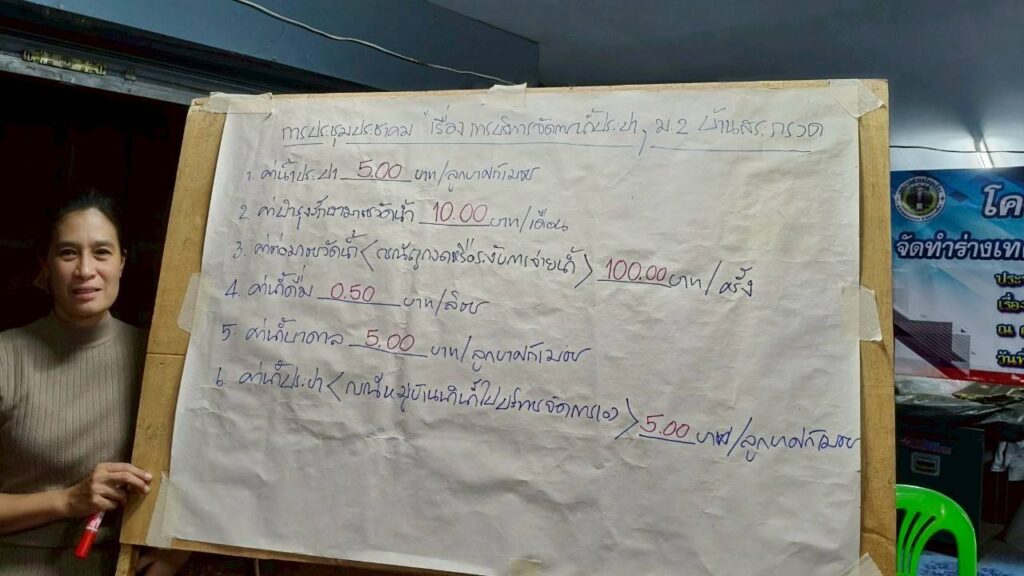 การประชุมประชาคม "เรื่อง การบริการจัดการน้ำประปา, ม 2 บ้านสระกรวด
1. ค่าน้ำประปา 5.00 บาท/ลูกบาศก์เมตร
2. ค่าบำรุงรักษามาตรวัดน้ำ 10.00 บาท/เดือน
3. ค่าต่อมาตรวัดน้ำ < กรณีถูกงดหรือระงับการจ่ายน้ำ > 100.00 บาท/ครั้ง
4. ค่าน้ำดื่ม 0.50 บาท/ลิตร
5. ค่าน้ำบาดาล 5.00 บาท/ลูกบาศก์เมตร
6. ค่าน้ำประปา < กรณีหมู่บ้านนำน้ำไปบริหารจัดการเอง > 5.00 บาท/ลูกบาศก์เมตร
โค
จัดทำร่างเท
ประ
เรื่อง
ณ
วันที่